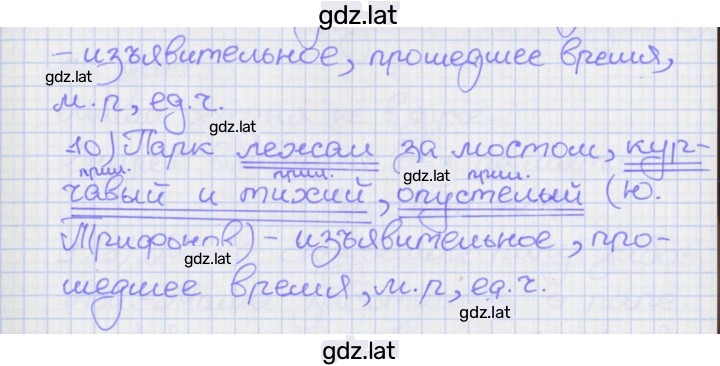 gdz.lat
- изъявительное, прошедшее время,
gdz.lat
м.р, ед.ч.
gdz.lat
10) Парк лежал за мостом, кур-
прил. прил. gdz.lat прил.
чавый и тихий, опустелый (Ю.
Трифонов) - изъявительное, про-
gdz.lat
шедшее время, м.р, ед.ч.
gdz.lat
gdz.lat